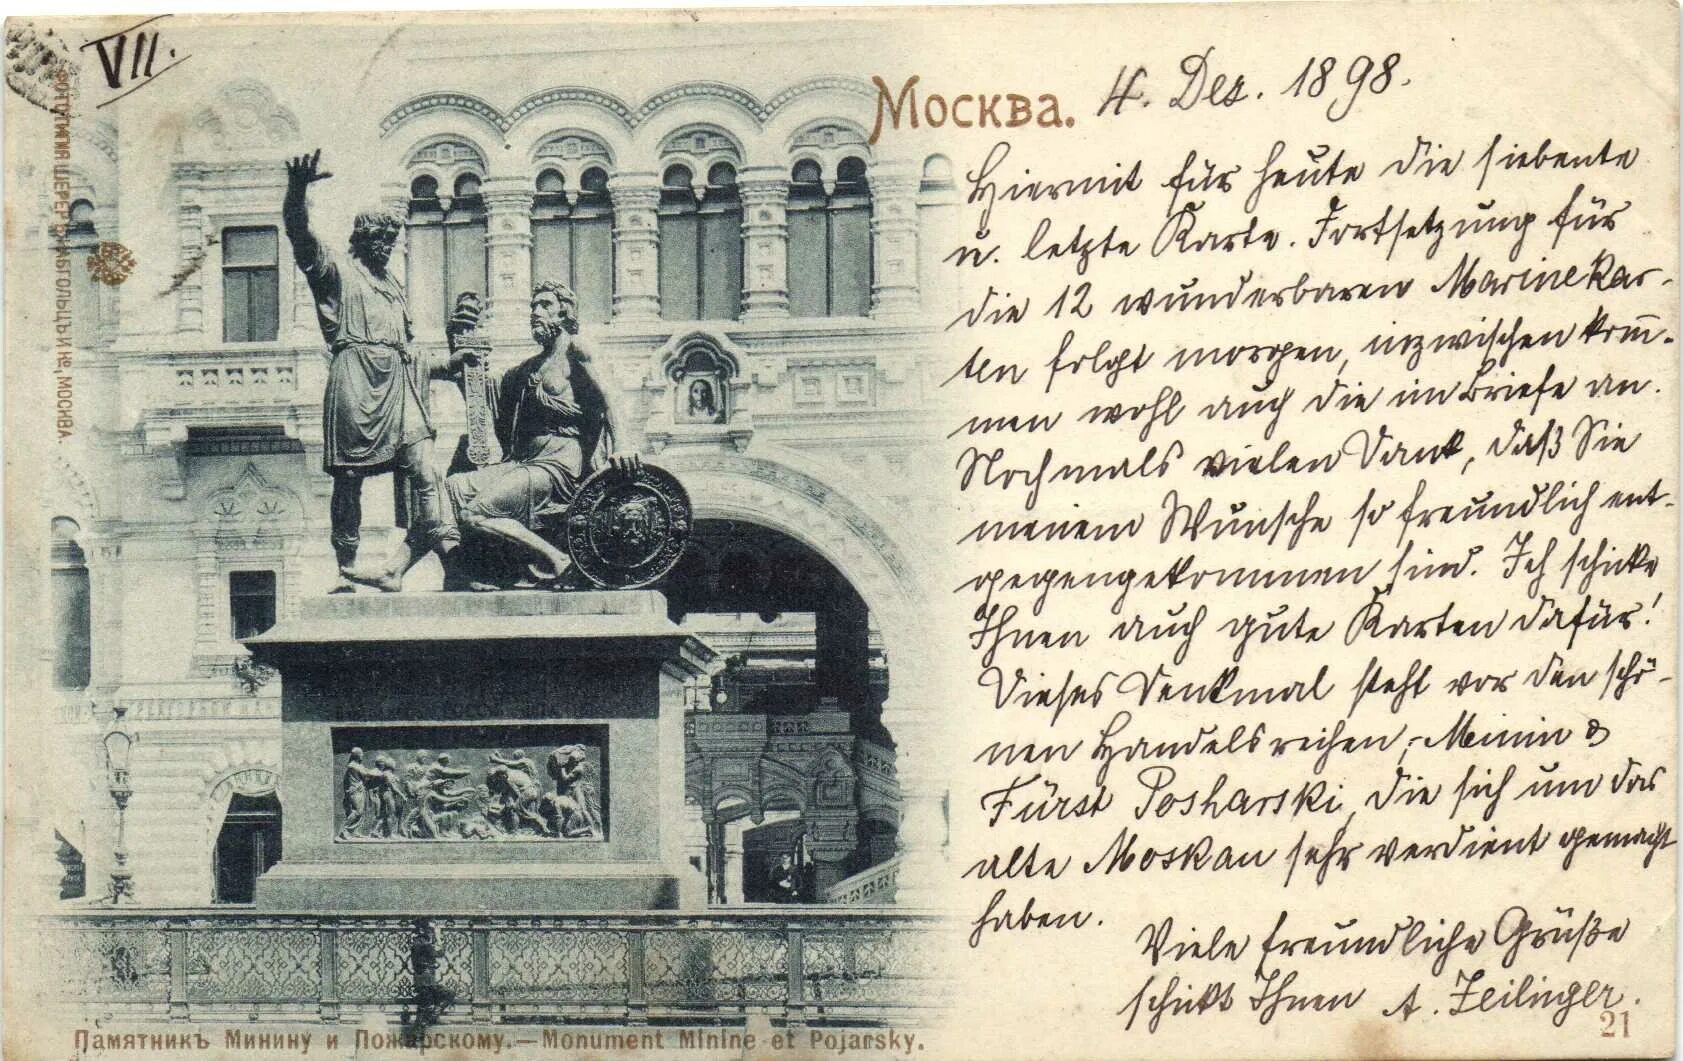 VII.
ФОТОТИПІЯ ШЕРЕРЪ, НАБГОЛЬЦЪ И Кº, МОСКВА.
Москва. 4. Dez. 1898.
Hiermit für heute die siebente
u. letzte Karte. Fortsetzung für
die 12 wunderbaren Marinekar-
ten folgt morgen, inzwischen kom̅-
men wohl auch die im Briefe an.
Nochmals vielen Dank, daß Sie
meinem Wunsche so freundlich ent-
gegengekommen sind. Ich schicke
Ihnen auch gute Karten dafür!
Dieses Denkmal steht vor den schö-
nen Handelsreihen,- Minin &
Fürst Posharski, die sich um das
alte Moskau sehr verdient gemacht
haben.
Viele freundliche Grüße
schickt Ihnen A. Zeilinger.
21
Памятникъ Минину и Пожарскому.—Monument Minine et Pojarsky.